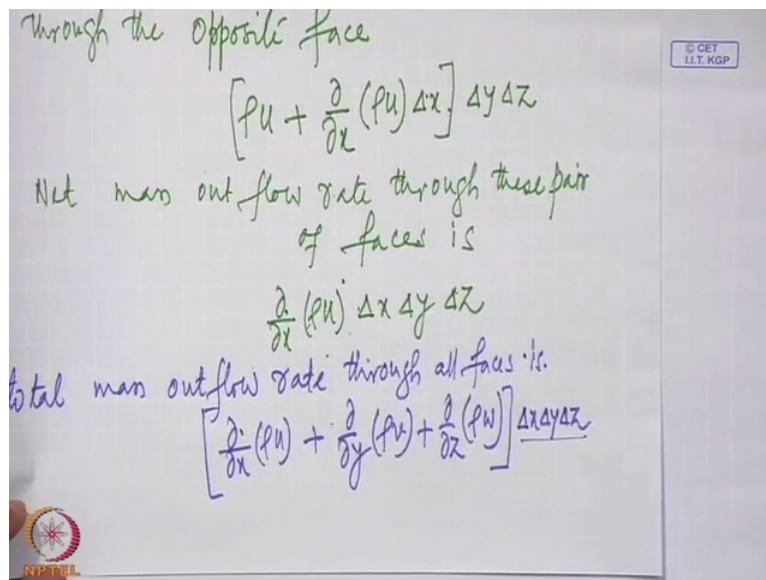 through the opposite face
© CET
I.I.T. KGP
[ρu + ∂/∂x (ρu) Δx] Δy Δz
Net mass outflow rate through these pair
of faces is
∂/∂x (ρu) Δx Δy Δz
total mass outflow rate through all faces is.
[∂/∂x (ρu) + ∂/∂y (ρv) + ∂/∂z (ρw)] Δx Δy Δz
NPTEL